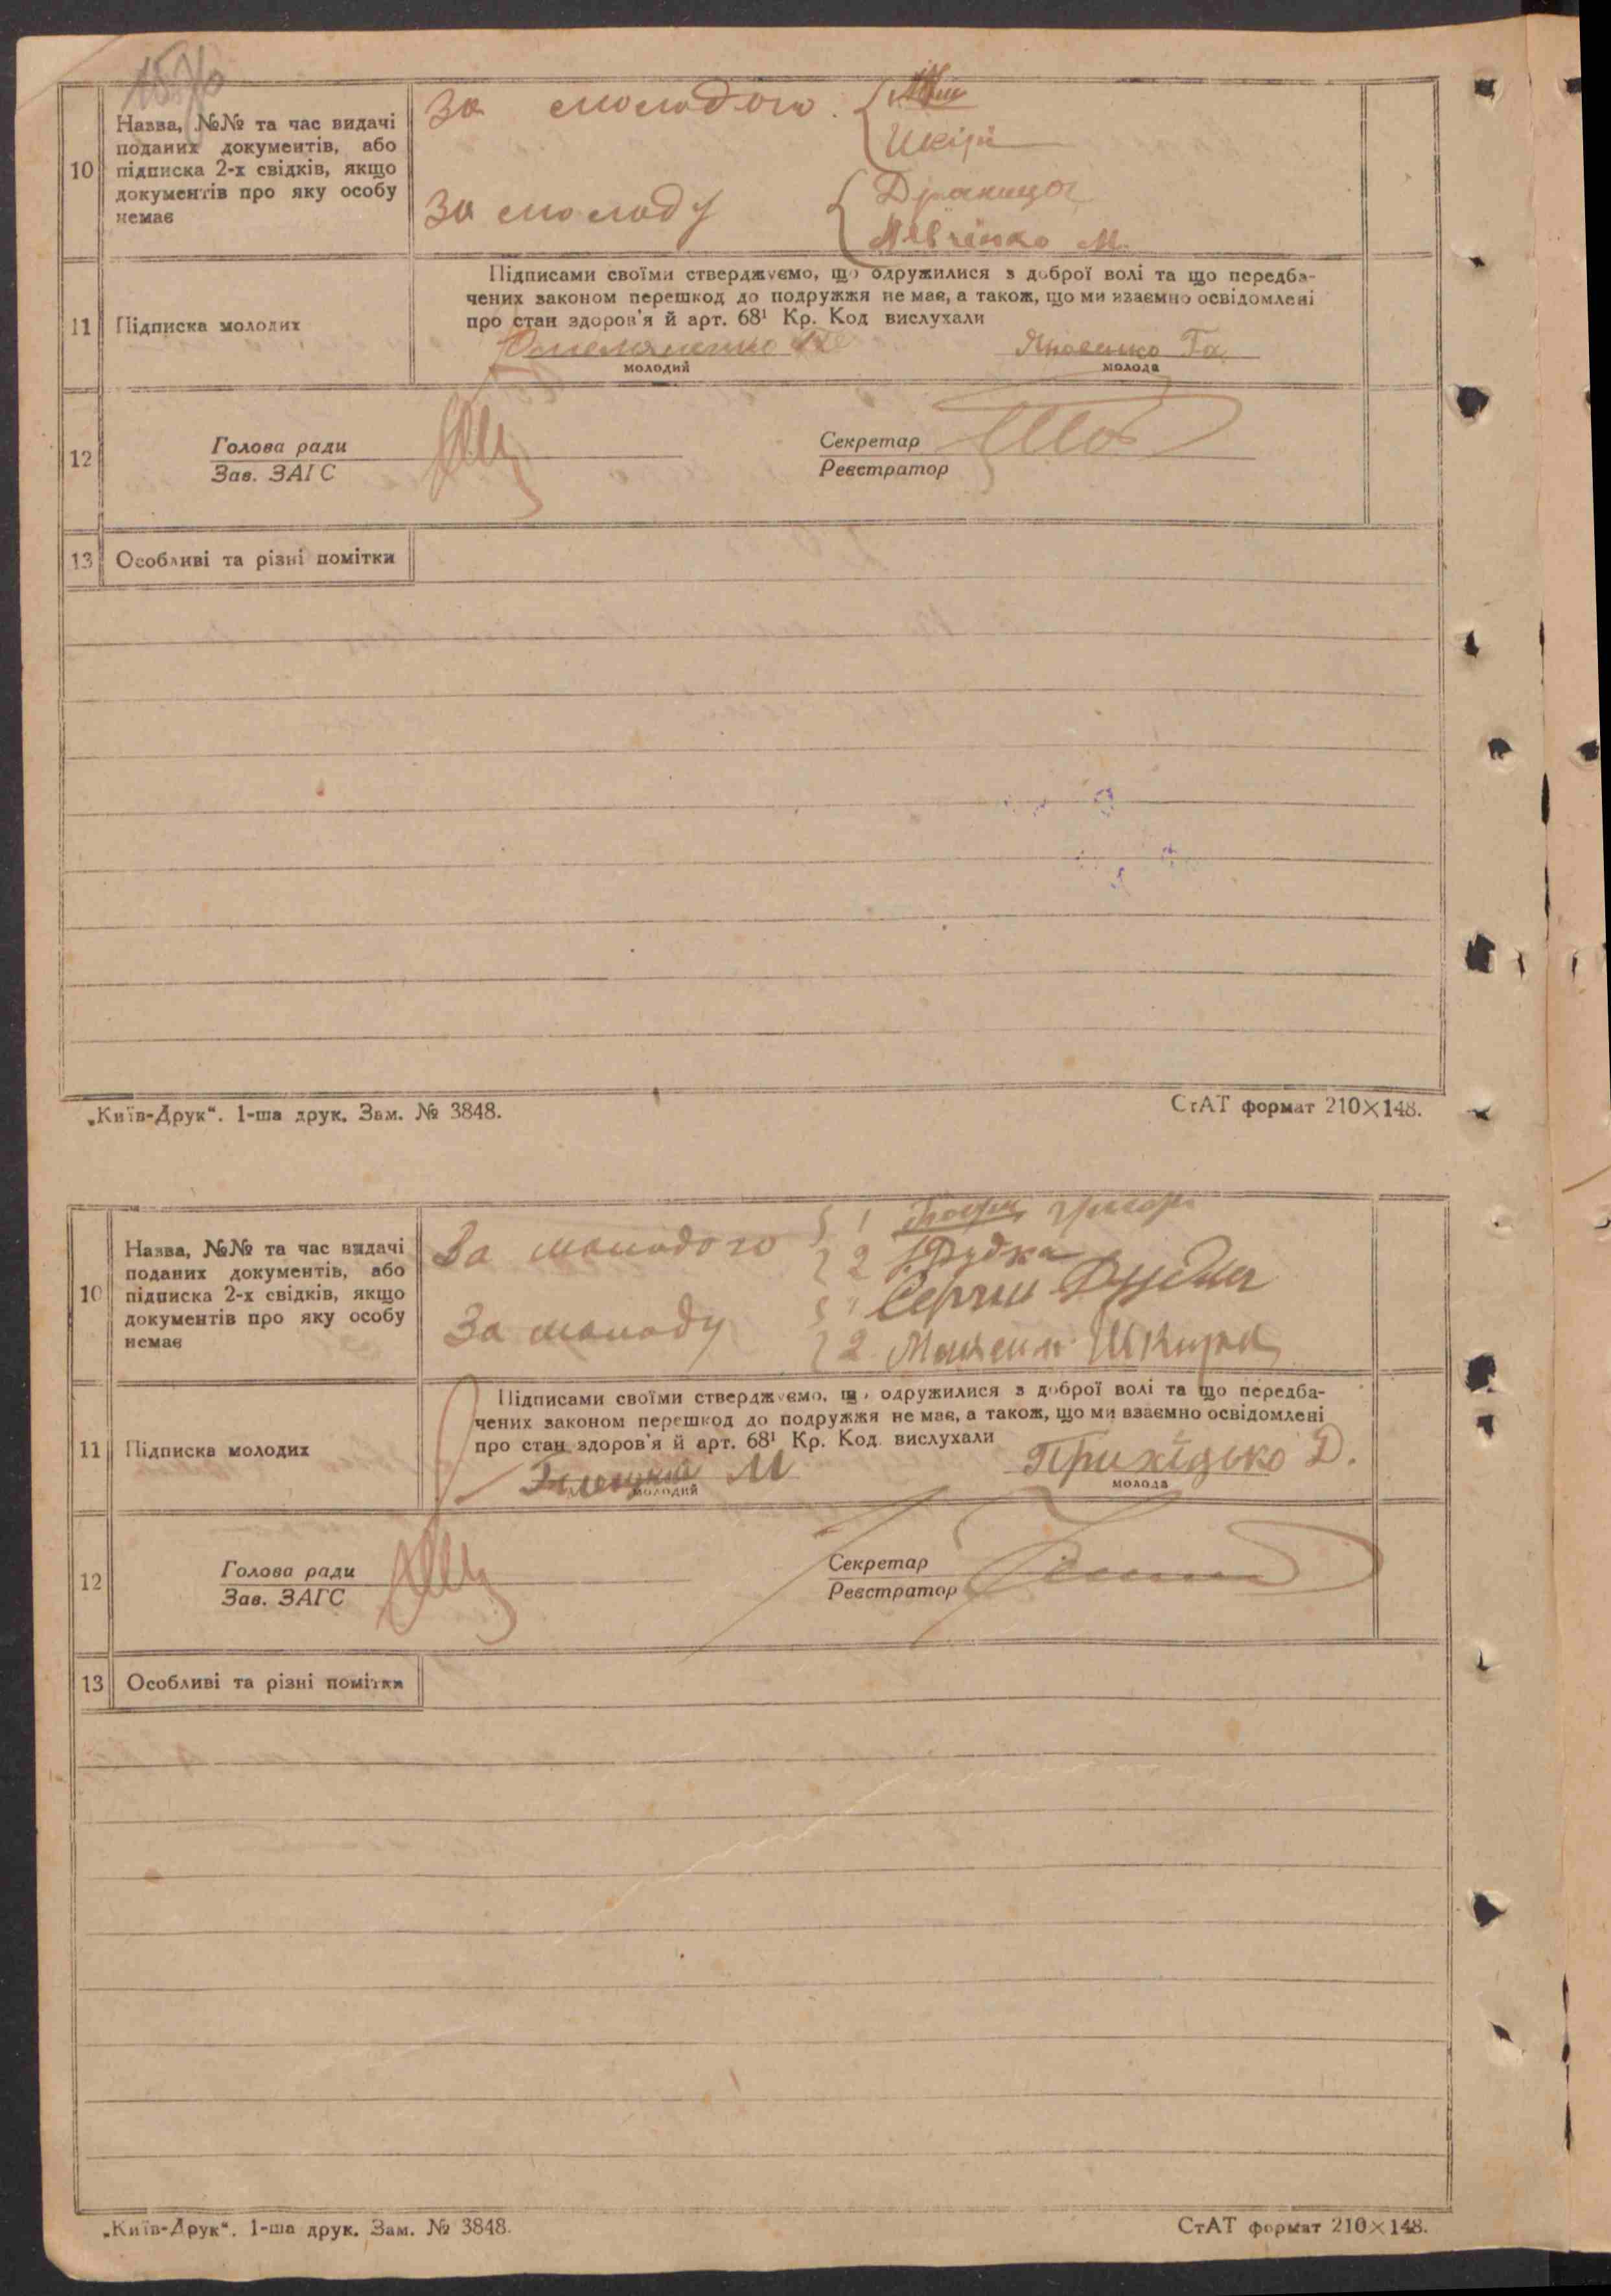 За молодого
Шкіря
10 Назва, №№ та час видачі
поданих документів, або
підписка 2-х свідків, якщо
документів про яку особу
немає
За молоду
Левченко М.
Підписами своїми стверджуємо, що одружилися з доброї волі та що передба-
чених законом перешкод до подружжя не має, а також, що ми взаємно освідомлені
11 Підписка молодих
про стан здоров'я й арт. 68¹ Кр. Код вислухали
Омеляненко
Яковенко Га
молодий
молода
12
Голова ради
Зав. ЗАГС
Секретар
Реєстратор
13 Особливі та різні помітки
„Київ-Друк“. 1-ша друк. Зам. № 3848.
СтАТ формат 210×148.
10 Назва, №№ та час видачі
поданих документів, або
підписка 2-х свідків, якщо
документів про яку особу
немає
За молодого
1
2 Дудка
За молоду
1 Сергій Дудка
2 Максим Шкира
Підписами своїми стверджуємо, що одружилися з доброї волі та що передба-
чених законом перешкод до подружжя не має, а також, що ми взаємно освідомлені
11 Підписка молодих
про стан здоров'я й арт. 68¹ Кр. Код вислухали
М
Прихідько Д.
молодий
молода
12
Голова ради
Зав. ЗАГС
Секретар
Реєстратор
13 Особливі та різні помітки
„Київ-Друк“. 1-ша друк. Зам. № 3848.
СтАТ формат 210×148.